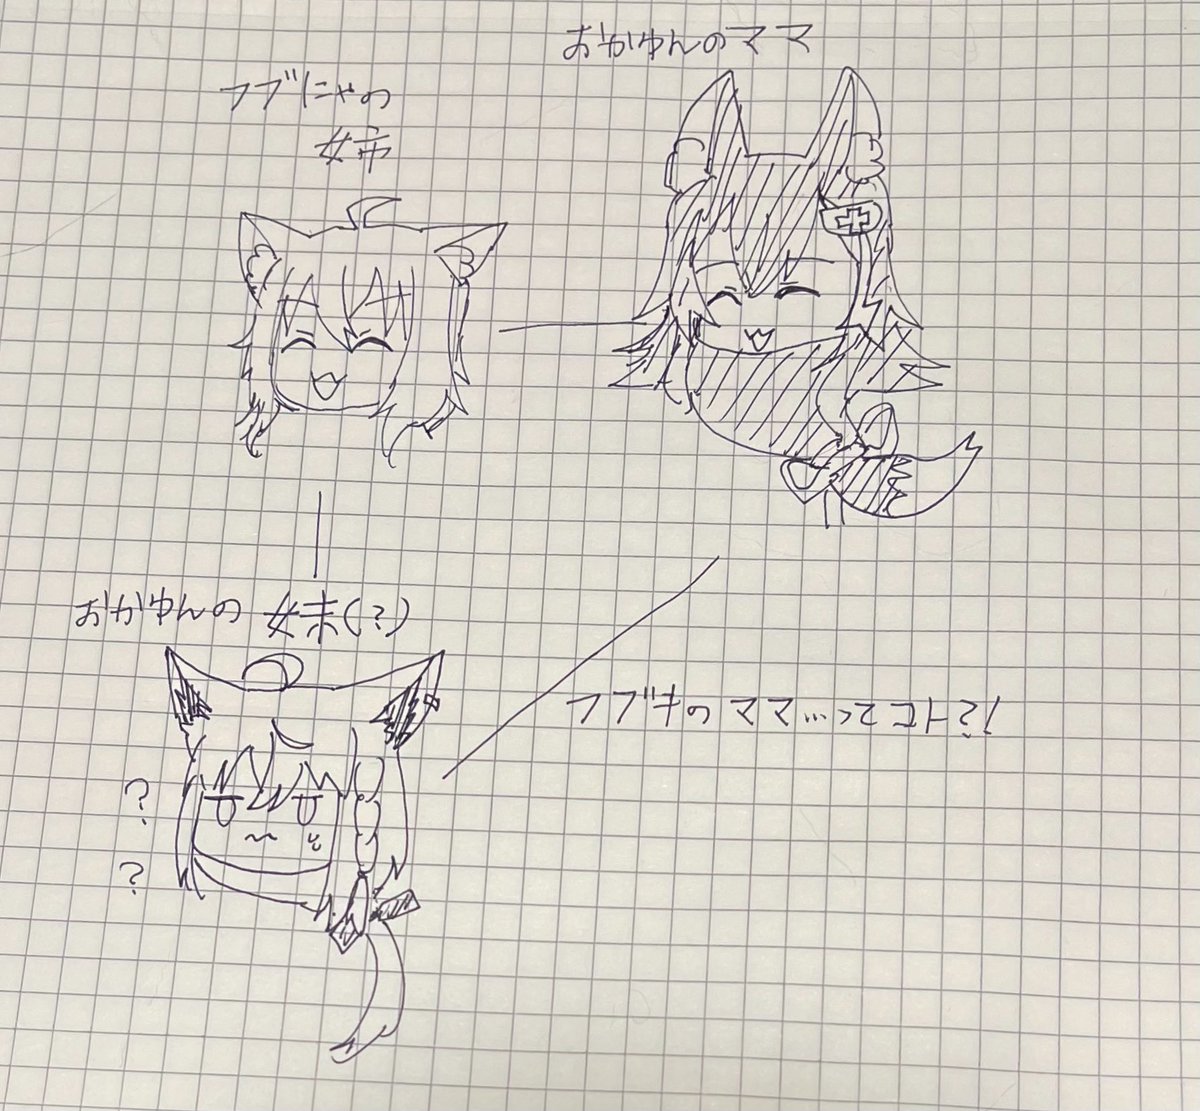 おかゆんのママ
フブにゃの
姉
おかゆんの 妹(?)
フブキのママ...ってコト?!
?
?